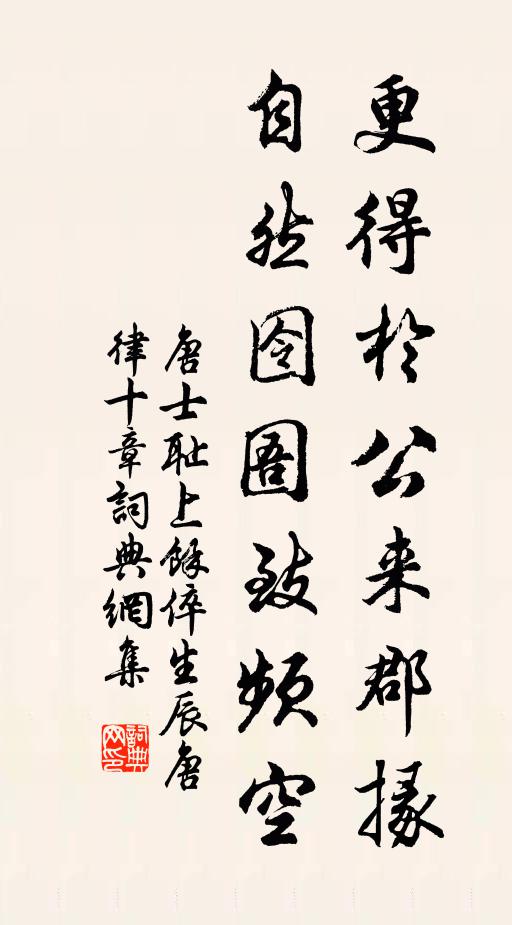 更得於公来郡掾
自然囹圄致頻空
唐士耻上餘倅生辰唐
律十章詞典網集
詞典網印